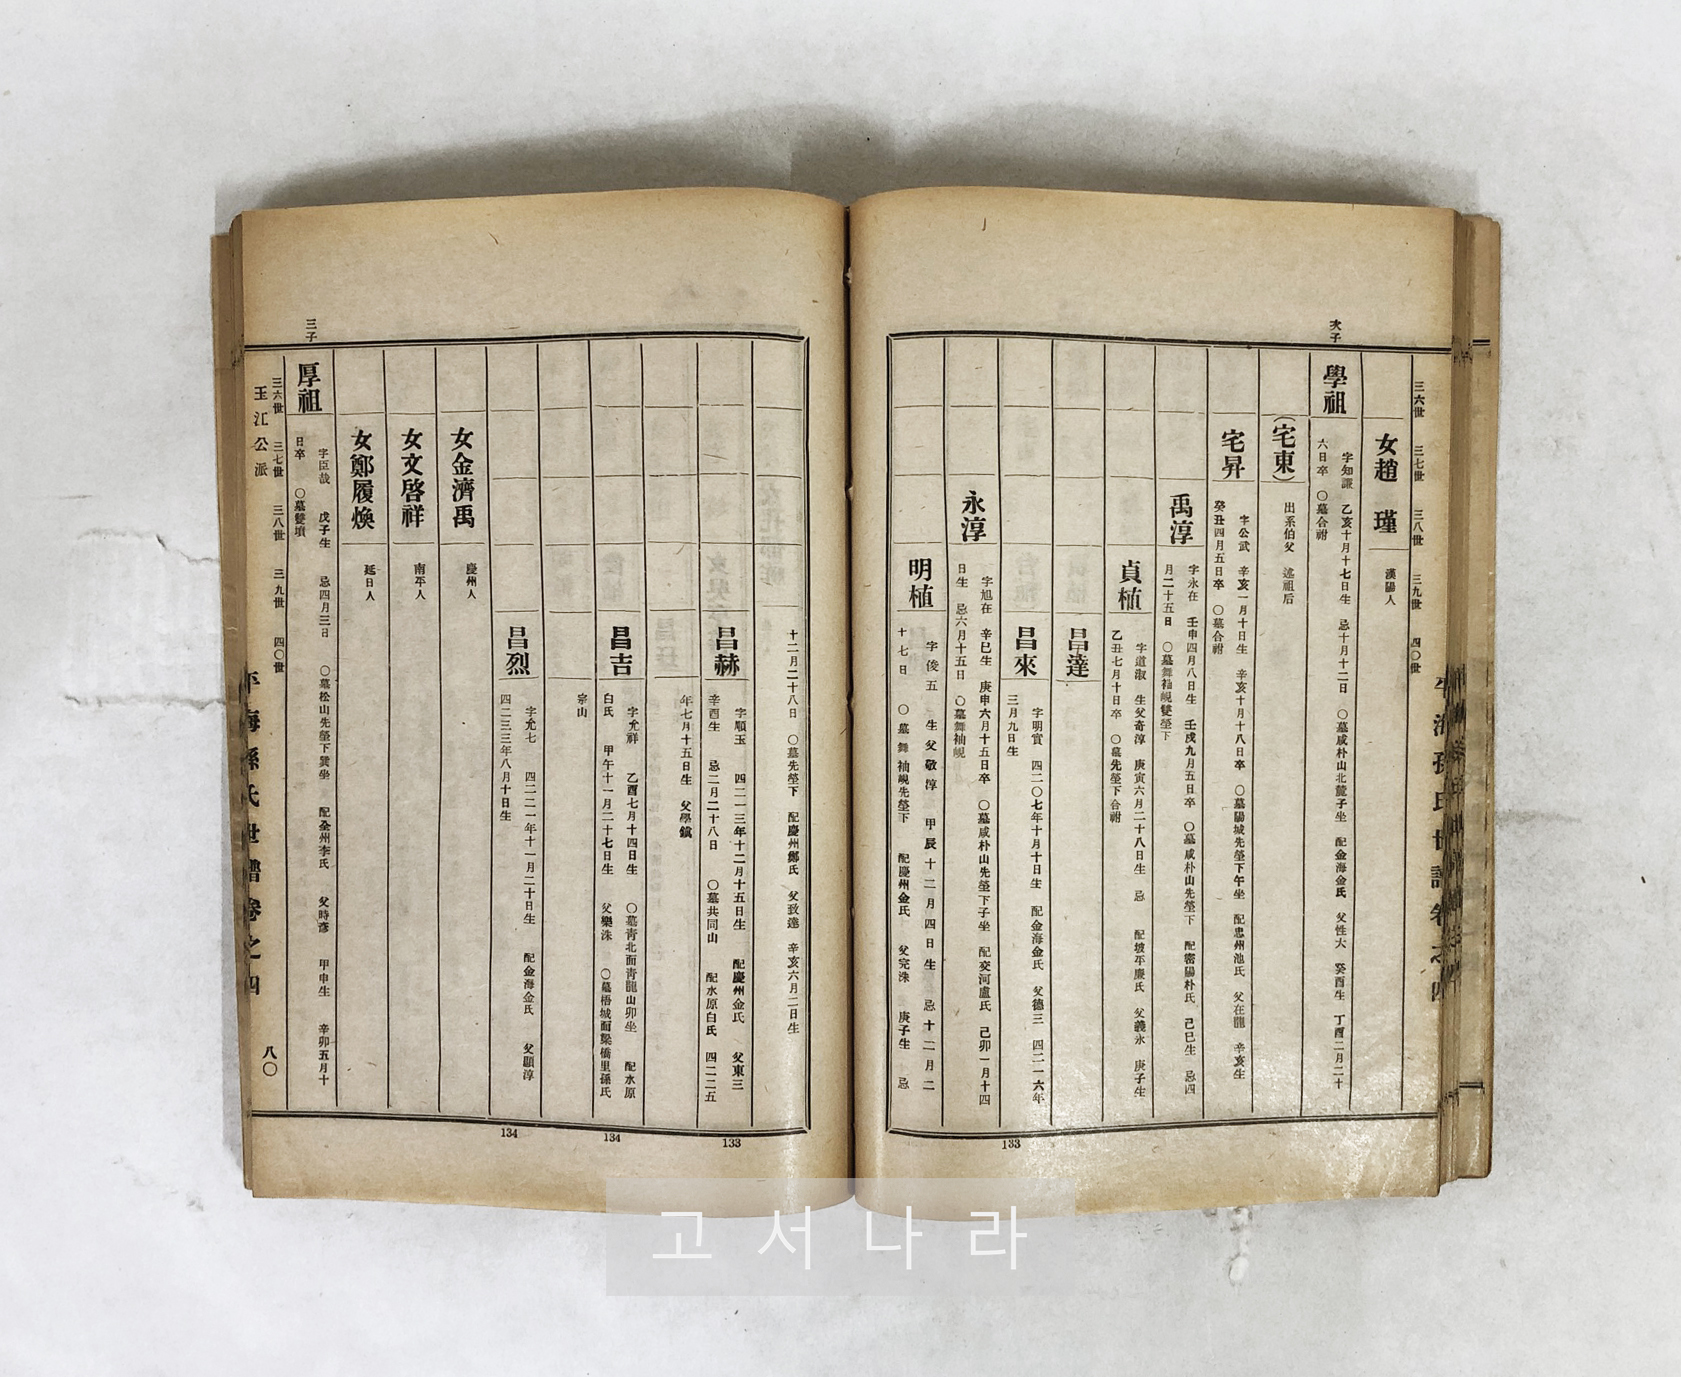 三六世 三七世 三八世 三九世 四〇世
女趙 瑾
漢陽人
次子
學祖
字知謙 乙亥十月十七日生 忌十月十二日 〇墓咸朴山北麓子坐 配金海金氏 父性大 癸酉生 丁酉二月二十
六日卒 〇墓合祔
(宅東)
出系伯父 述祖后
宅昇
字公武 辛亥一月十日生 辛亥十月十八日卒 〇墓陽城先塋下午坐 配忠州池氏 父在龍 辛亥生
癸丑四月五日卒 〇墓合祔
禹淳
字永在 壬申四月八日生 壬戌九月五日卒 〇墓咸朴山先塋下 配密陽朴氏 己巳生 忌四
月二十五日 〇墓舞袖峴雙塋下
貞植
字道淑 生父奇淳 庚寅六月二十八日生 忌 配坡平廉氏 父義永 庚子生
乙丑七月十日卒 〇墓先塋下合祔
昌達
昌來
字明實 四二〇七年十月十日生 配金海金氏 父德三 四二一六年
三月九日生
133
永淳
字旭在 辛巳生 庚申六月十五日卒 〇墓咸朴山先塋下子坐 配交河盧氏 己卯一月十四
日生 忌六月十五日 〇墓舞袖峴
明植
字俊五 生父敬淳 甲辰十二月四日生 忌十二月二
十七日 〇墓舞袖峴先塋下 配慶州金氏 父完洙 庚子生 忌
十二月二十八日 〇墓先塋下 配慶州鄭氏 父致達 辛亥六月二日生
昌赫
字順玉 四二一三年十二月十五日生 配慶州金氏 父東三
辛酉生 忌二月二十八日 〇墓共同山 配水原白氏 四二二五
年七月十五日生 父學鎭
133
昌吉
字允祥 乙酉七月十四日生 〇墓靑北面靑龍山卯坐 配水原
白氏 甲午十一月二十七日生 父樂洙 〇墓梧城面梁橋里孫氏
宗山
134
昌烈
字允七 四二二一年十一月二十日生 配金海金氏 父顯淳
四二三三年八月十日生
134
女金濟禹
慶州人
女文啓祥
南平人
女鄭履煥
延日人
三子
厚祖
字臣哉 戊子生 忌四月三日 〇墓松山先塋下巽坐 配全州李氏 父時彦 甲申生 辛卯五月十
日卒 〇墓雙墳
三六世 三七世 三八世 三九世 四〇世
玉江公派
平海孫氏世譜卷之四
八〇
고서나라